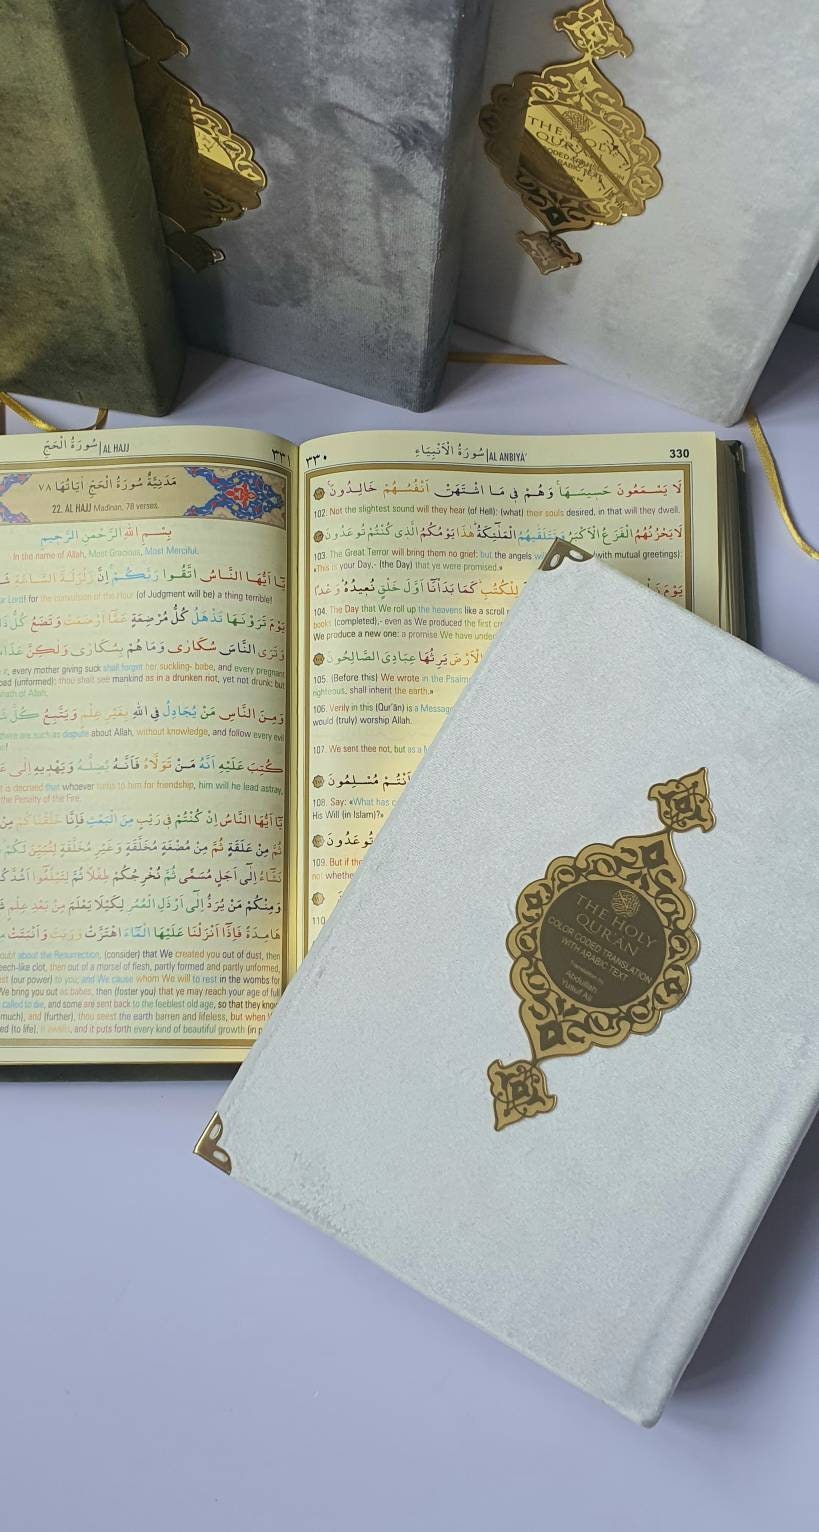 THE HOLY
QUR'AN
330
سُورَةُ الْاَنْبِيَاءِ | AL ANBIYA'
٣٣٠
لَا يَسْمَعُونَ حَسِيسَهَا وَهُمْ فِي مَا اشْتَهَتْ اَنْفُسُهُمْ خَالِدُونَ
102. Not the slightest sound will they hear (of Hell): (what) their souls desired, in that will they dwell.
لَا يَحْزُنُهُمُ الْفَزَعُ الْاَكْبَرُ وَتَتَلَقّٰيهُمُ الْمَلٰٓئِكَةُ هٰذَا يَوْمُكُمُ الَّذِي كُنْتُمْ تُوعَدُونَ
103. The Great Terror will bring them no grief: but the angels with mutual greetings):
«This is your Day,- (the Day) that ye were promised.»
لِلْكُتُبِ كَمَا بَدَأْنَا اَوَّلَ خَلْقٍ نُعِيدُهُ وَعْدًا
104. The Day that We roll up the heavens like a scroll
books (completed),- even as We produced the first
We produce a new one: a promise We have
يَرِثُهَا عِبَادِيَ الصَّالِحُونَ
105. (Before this) We wrote in the
righteous, shall inherit the earth.»
106. Verily in this (Qur'ân) is a
would (truly) worship Allah.
107. We sent thee not, but as a
اَنْتُمْ مُسْلِمُونَ
108. Say: «What has
His Will (in Islam)?»
تُوعَدُونَ
109. But if
110.
سُورَةُ الْحَجِّ | AL HAJJ
٣٣١
مَدَنِيَّةٌ سُورَةُ الْحَجِّ اٰيَاتُهَا ٧٨
22. AL HAJJ Madinan, 78 verses.
بِسْمِ اللهِ الرَّحْمٰنِ الرَّحِيمِ
In the name of Allah, Most Gracious, Most Merciful.
يَا اَيُّهَا النَّاسُ اتَّقُوا رَبَّكُمْ اِنَّ زَلْزَلَةَ السَّاعَةِ
Lord! for the convulsion of the Hour (of Judgment will be) a thing terrible!
يَوْمَ تَرَوْنَهَا تَذْهَلُ كُلُّ مُرْضِعَةٍ عَمَّا اَرْضَعَتْ وَتَضَعُ كُلُّ
وَتَرَى النَّاسَ سُكَارٰى وَمَا هُمْ بِسُكَارٰى وَلٰكِنَّ
it, every mother giving suck shall forget her suckling- babe, and every pregnant
(unformed): thou shalt see mankind as in a drunken riot, yet not drunk: but
of Allah.
وَمِنَ النَّاسِ مَنْ يُجَادِلُ فِي اللهِ بِغَيْرِ عِلْمٍ وَيَتَّبِعُ كُلَّ
there are such as dispute about Allah, without knowledge, and follow every evil
كُتِبَ عَلَيْهِ اَنَّهُ مَنْ تَوَلَّاهُ فَاَنَّهُ يُضِلُّهُ وَيَهْدِيهِ اِلٰى
is decreed that whoever turns to him for friendship, him will he lead astray,
the Penalty of the Fire.
يَا اَيُّهَا النَّاسُ اِنْ كُنْتُمْ فِي رَيْبٍ مِنَ الْبَعْثِ فَاِنَّا خَلَقْنَاكُمْ مِنْ
ثُمَّ مِنْ عَلَقَةٍ ثُمَّ مِنْ مُضْغَةٍ مُخَلَّقَةٍ وَغَيْرِ مُخَلَّقَةٍ لِنُبَيِّنَ لَكُمْ
نَشَاءُ اِلٰى اَجَلٍ مُسَمًّى ثُمَّ نُخْرِجُكُمْ طِفْلًا ثُمَّ لِتَبْلُغُوا
وَمِنْكُمْ مَنْ يُرَدُّ اِلٰى اَرْذَلِ الْعُمُرِ لِكَيْلَا يَعْلَمَ مِنْ بَعْدِ عِلْمٍ
هَامِدَةً فَاِذَا اَنْزَلْنَا عَلَيْهَا الْمَاءَ اهْتَزَّتْ وَرَبَتْ وَاَنْبَتَتْ
about the Resurrection, (consider) that We created you out of dust, then
clot, then out of a morsel of flesh, partly formed and partly unformed,
(our power) to you; and We cause whom We will to rest in the wombs for
We bring you out as babes, then (foster you) that ye may reach your age of full
called to die, and some are sent back to the feeblest old age, so that they know
much), and (further), thou seest the earth barren and lifeless, but when
(to life), it swells, and it puts forth every kind of beautiful growth (in
THE HOLY
QUR'AN
COLOR CODED TRANSLATION
WITH ARABIC TEXT
Translation by
Abdullah
Yusuf Ali